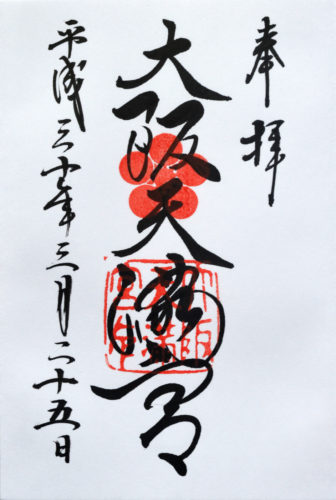 奉拝
大阪天滿宮
平成三十年三月二十五日